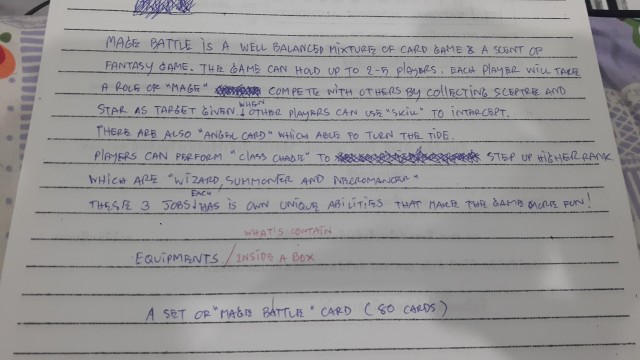 MAGE BATTLE IS A WELL BALANCED MIXTURE OF CARD GAME & A SCENT OF
FANTASY GAME. THE GAME CAN HOLD UP TO 2-5 PLAYERS. EACH PLAYER WILL TAKE
A ROLE OF "MAGE" COMPETE WITH OTHERS BY COLLECTING SCEPTRE AND
STAR AS TARGET GIVEN WHEN OTHER PLAYERS CAN USE "SKILL" TO INTERCEPT.
THERE ARE ALSO "ANGEL CARD" WHICH ABLE TO TURN THE TIDE.
PLAYERS CAN PERFORM "CLASS CHANGE" TO STEP UP HIGHER RANK
WHICH ARE "WIZARD, SUMMONER AND NECROMANCER"
THESE 3 JOBS EACH HAS IS OWN UNIQUE ABILITIES THAT MAKE THE GAME MORE FUN!
WHAT'S CONTAIN
EQUIPMENTS / INSIDE A BOX
A SET OF "MAGE BATTLE" CARD (80 CARDS)